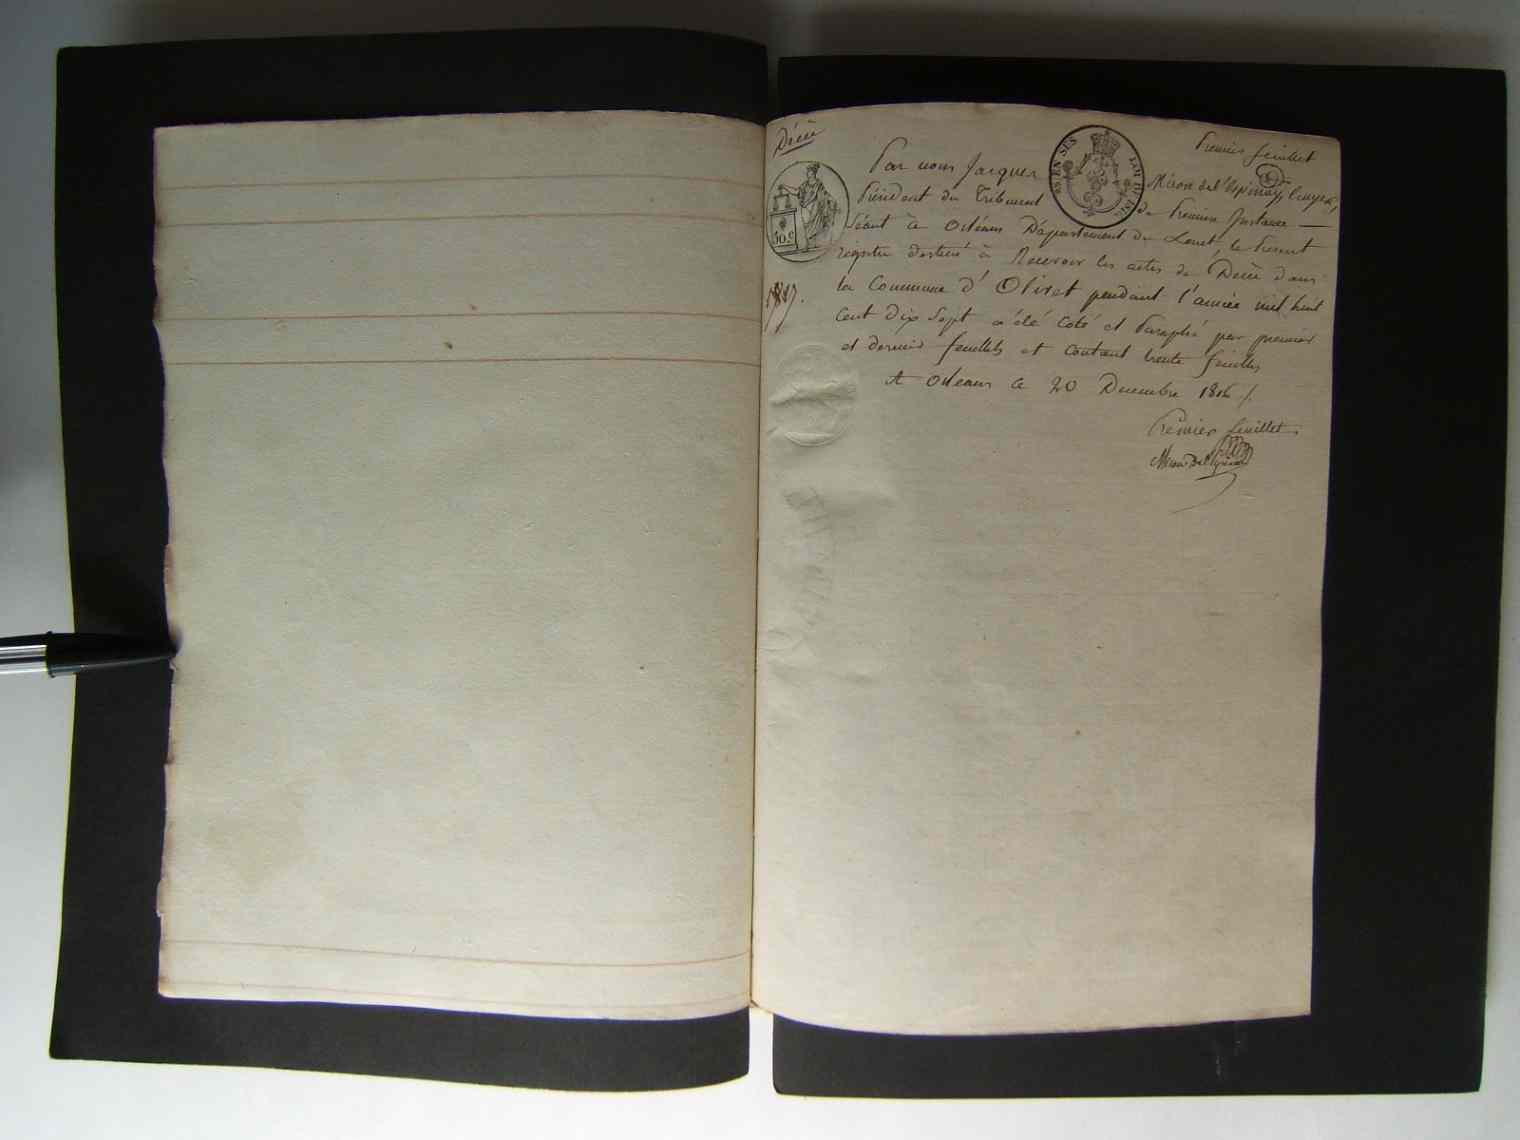 Décès
Premier feuillet
Par nous Jacques Miron de l'Espinay, Ecuyer,
Président du Tribunal de Premiere Instance
Séant à Orléans Département du Loiret, le Present
registre destiné à Recevoir les actes de Décès dans
la Commune d'Olivet pendant l'année mil huit
cent Dix Sept a été coté et Paraphé par premier
et dernier feuillets et contient trente feuilles
A Orleans ce 20 Decembre 1816
Premier feuillet
Miron De l'Espinay
1817.
50.c